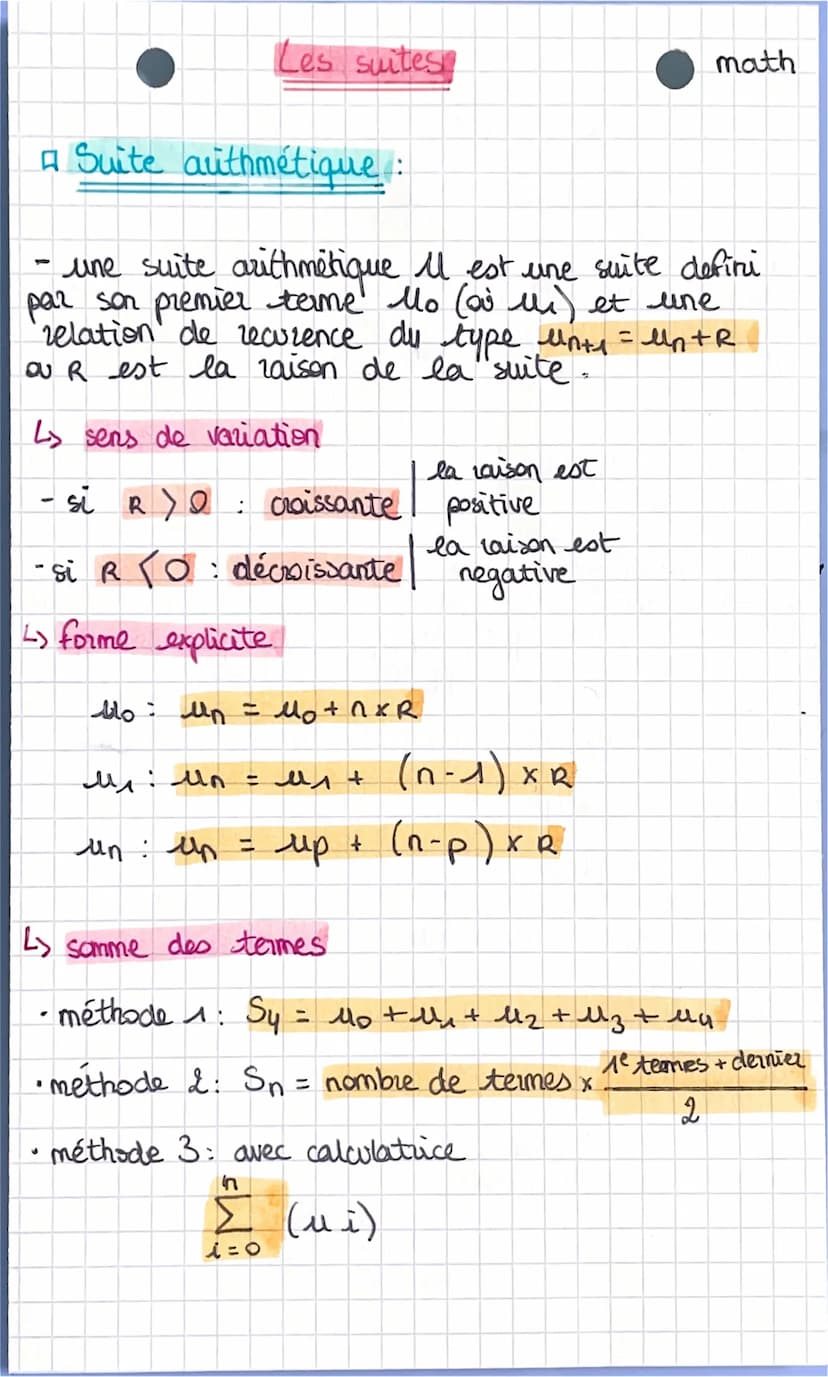 Les suites
math
Suite arithmétique :
- une suite arithmétique U est une suite defini
par son premier terme U₀ (où u₁) et une
relation de recurence du type uₙ₊₁ = uₙ + R
où R est la raison de la suite.
↳ sens de variation
- si R > 0 : croissante | la raison est
positive
- si R < 0 : décroissante | la raison est
negative
↳ forme explicite
u₀ : uₙ = u₀ + n × R
u₁ : uₙ = u₁ + (n-1) × R
uₙ : uₙ = up + (n-p) × R
↳ somme des termes
· méthode 1 : S₄ = u₀ + u₁ + u₂ + u₃ + u₄
· méthode 2 : Sₙ = nombre de termes × 1e termes + dernier
2
· méthode 3 : avec calculatrice
n
Σ (u i)
i = 0